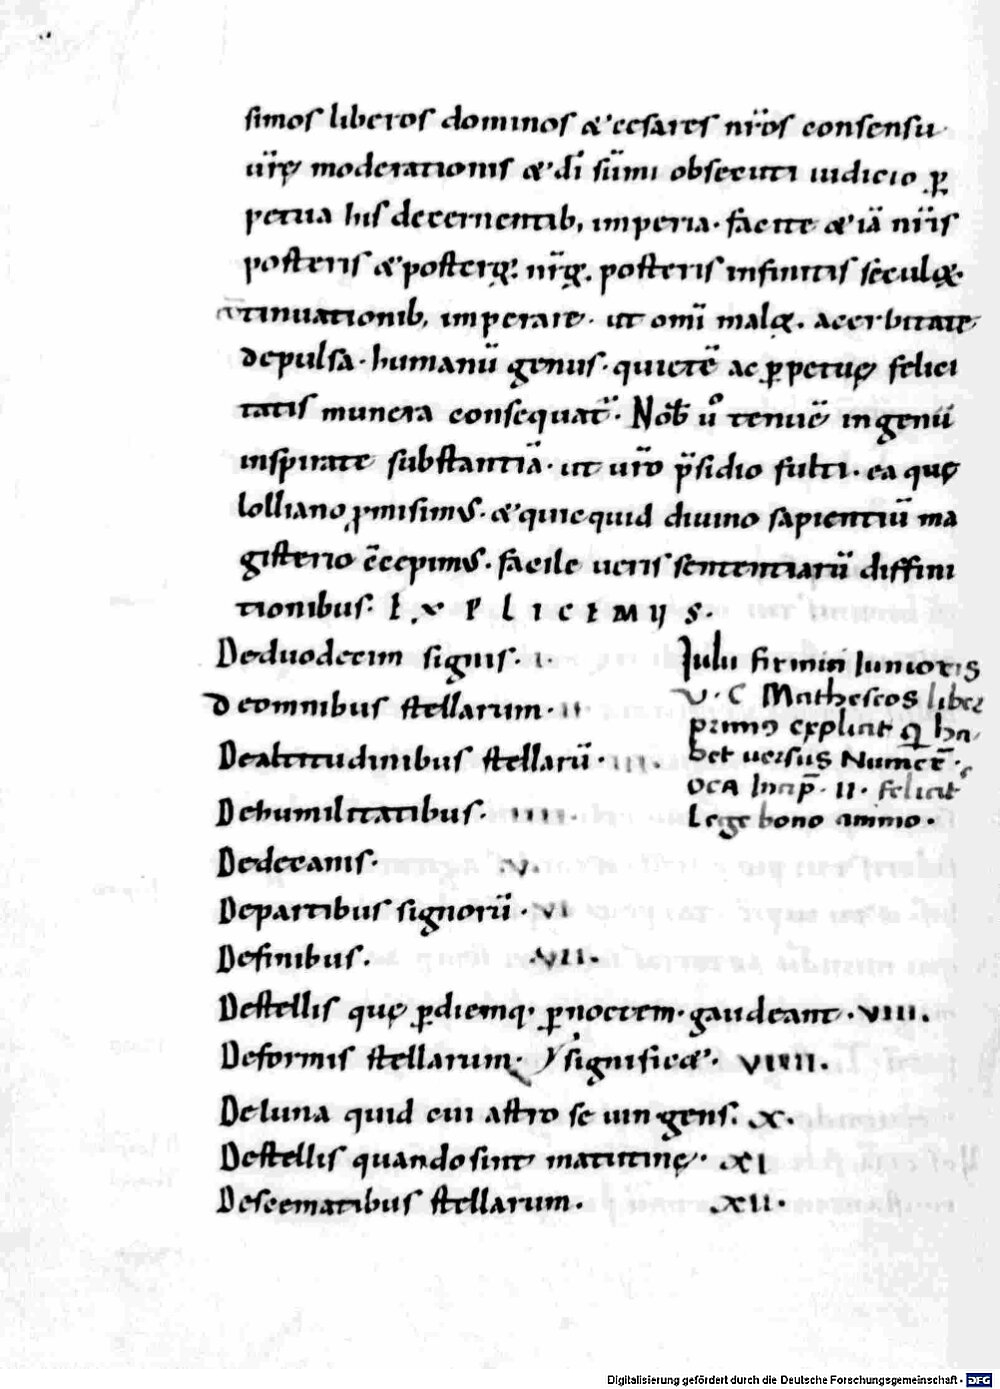 simos liberos dominos & cesares nr̄os consensu
ūrę moderationis & dī sūmi obsecuti iudicio ꝑ
petua his decernentib, imperia. facite & iā nr̄is
posteris & posterꝝ. nr̄ꝝ. posteris infinitis seculꝝ.
tinuationib, imperare. ut omī malꝝ. acerbitate
depulsa. humanū genus. quietē ac ꝑpetuę felici
tatis munera consequat̄. Nob̄ ů tenuē ingenii
inspirate substantiā. ut ur̄o p̄sidio fulti. ea quę
lolliano ꝓmisimus. & quicquid diuino sapientiū ma
gisterio ēcepimus. facile ueris sententiarū diffini
tionibus. EXPLICEMUS.
De duodecim signis. I.
De omnibus stellarum. II
De altitudinibus stellarū. III.
De humilitatibus. IIII.
De decanis. V.
De partibus signorū. VI
De finibus. VII.
De stellis quę ꝑ diemq. ꝑ noctem. gaudeant. VIIII.
De formis stellarum. significa VIIII.
De luna quid cui astro se iungens. X.
De stellis quando sint matutinę. XI
De scematibus stellarum. XII.
Julii firmiri Iunioris
V. C Matheseos liber
primo explicit Q ha
bet uersus Numer̄.
OCA Incip̄. II. felicit
Lege bono animo.
Digitalisierung gefördert durch die Deutsche Forschungsgemeinschaft - DFG